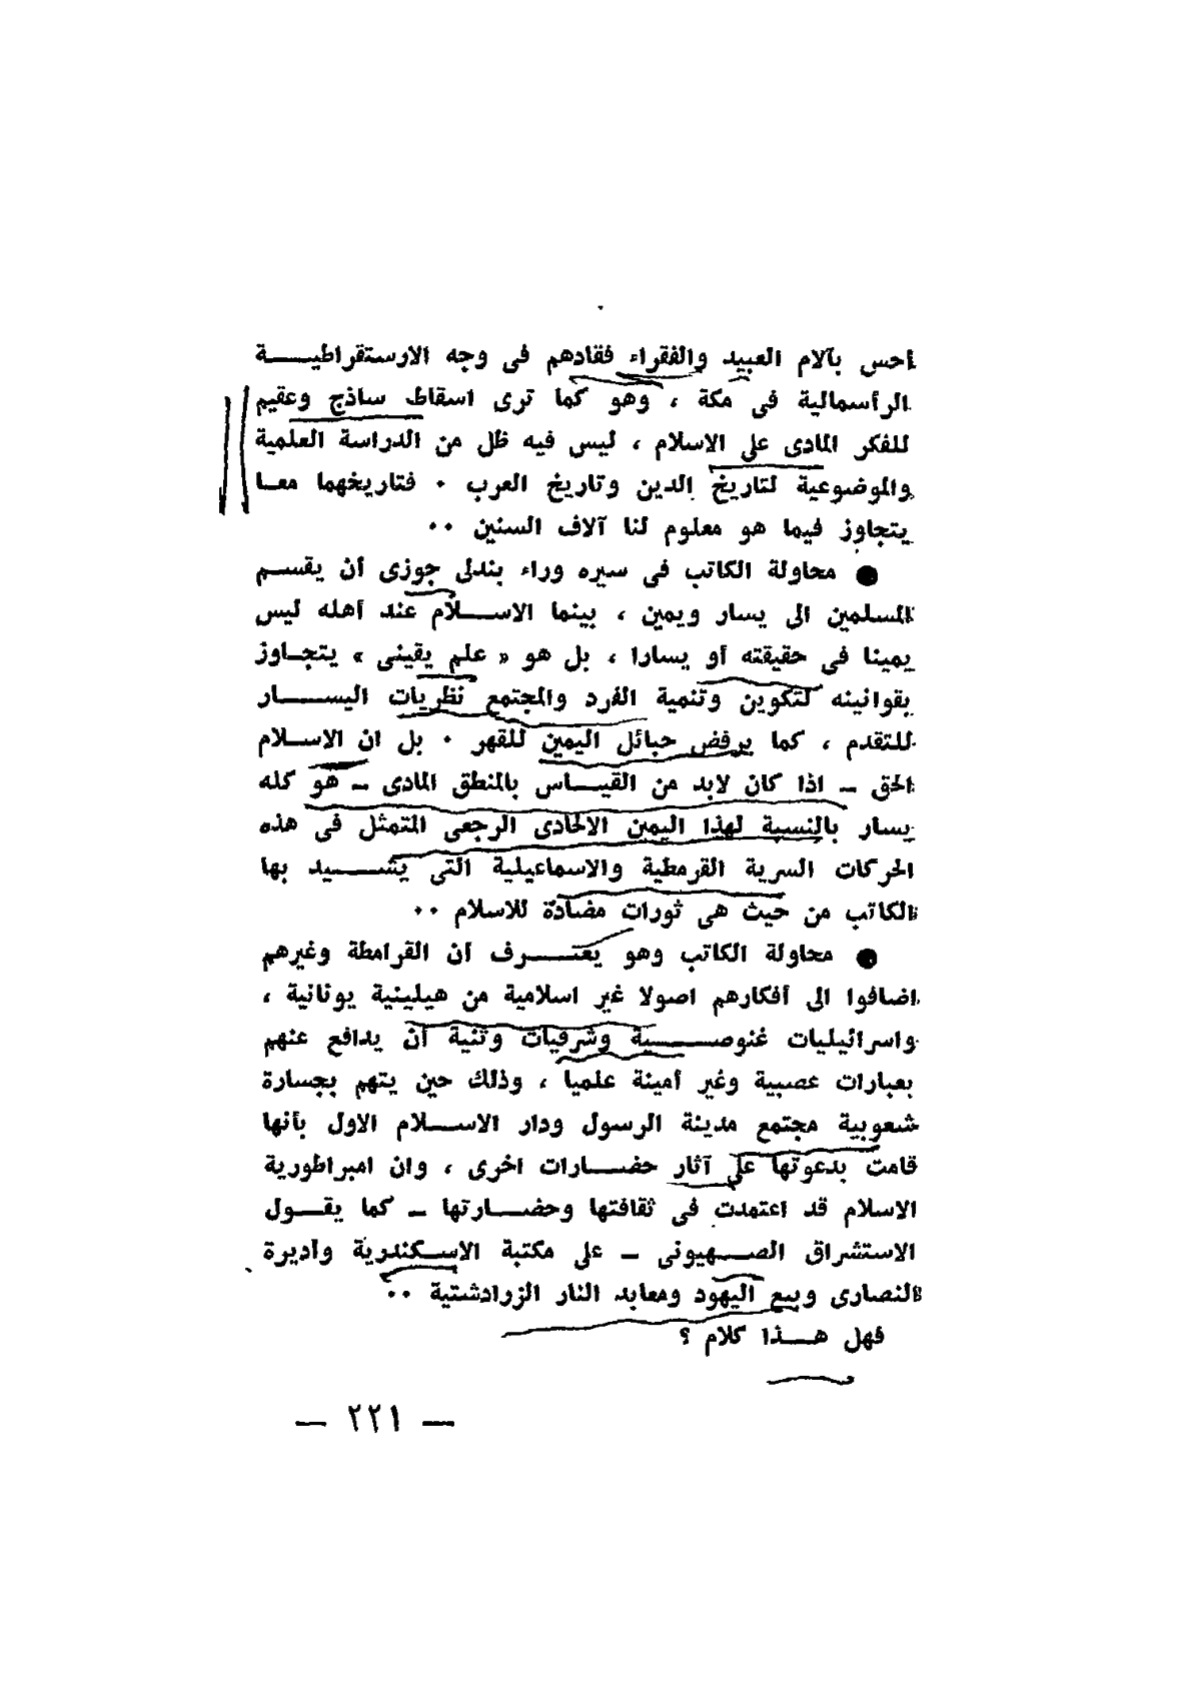 أحس بآلام العبيد والفقراء فقادهم فى وجه الارستقراطيـــة
الرأسمالية فى مكة ، وهو كما ترى اسقاط ساذج وعقيم
للفكر المادى على الاسلام ، ليس فيه ظل من الدراسة العلمية
والموضوعية لتاريخ الدين وتاريخ العرب ٠ فتاريخهما معـا
يتجاوز فيما هو معلوم لنا آلاف السنين ٠٠
● محاولة الكاتب فى سيره وراء بندلى جوزى أن يقســم
المسلمين الى يسار ويمين ، بينما الاســـلام عند أهله ليس
يمينا فى حقيقته أو يسارا ، بل هو « علم يقينى » يتجـاوز
بقوانينه لتكوين وتنمية الفرد والمجتمع نظريات اليســـار
للتقدم ، كما يرفض حبائل اليمين للقهر ٠ بل ان الاســلام
الحق ـ اذا كان لابد من القيـــاس بالمنطق المادى ـ هو كله
يسار بالنسبة لهذا اليمين الالحادى الرجعى المتمثل فى هذه
الحركات السرية القرمطية والاسماعيلية التى يشـــيد بها
الكاتب من حيث هى ثورات مضادة للاسلام ٠٠
● محاولة الكاتب وهو يعتـــرف أن القرامطة وغيرهم
اضافوا الى أفكارهم اصولا غير اسلامية من هيلينية يونانية ،
واسرائيليات غنوصـــية وشرقيات وثنية أن يدافع عنهم
بعبارات عصبية وغير أمينة علميا ، وذلك حين يتهم بجسارة
شعوبية مجتمع مدينة الرسول ودار الاســـلام الاول بأنها
قامت بدعوتها على آثار حضـــارات اخرى ، وان امبراطورية
الاسلام قد اعتمدت فى ثقافتها وحضـــارتها ـ كما يقـــول
الاستشراق الصـــهيونى ـ على مكتبة الاســكندرية وأديرة
النصارى وبيع اليهود ومعابد النار الزرادشتية ٠٠
فهل هـــذا كلام ؟
— ٢٢١ —